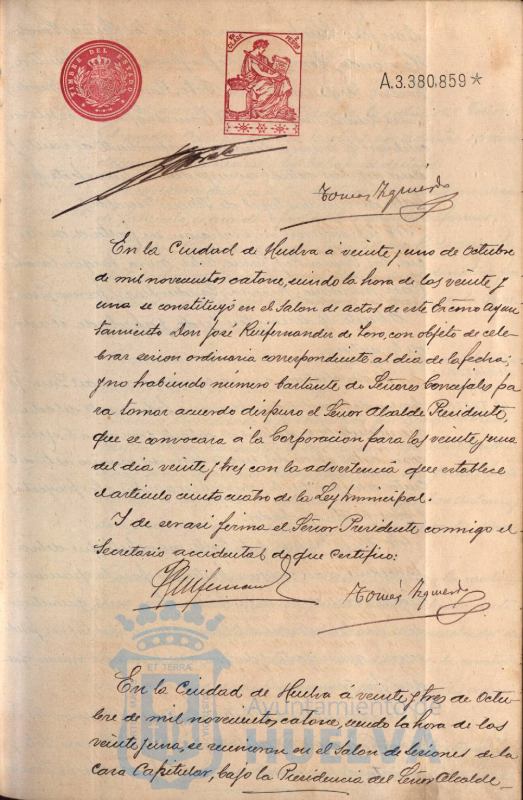 TIMBRE DEL ESTADO
CLASE
A.3.380.859*
Tomás Izquierdo
En la Ciudad de Huelva á veinte y uno de Octubre
de mil novecientos catorce, siendo la hora de las veinte y
una se constituyó en el Salon de actos de este Excmo Ayun
tamiento Don José Ruifernandez de Toro, con objeto de cele-
brar sesion ordinaria correspondiente al dia de la fecha;
y no habiendo número bastante de Señores Concejales pa
ra tomar acuerdo dispuso el Señor Alcalde Presidente,
que se convocara á la Corporacion para las veinte y una
del dia veinte y tres con la advertencia que establece
el articulo ciento cuatro de la Ley Municipal.
Y de ser asi firma el Señor Presidente conmigo el
Secretario accidental de que certifico:
Tomás Izquierdo
ET TERRÆ
Ayuntamiento de
HUELVA
En la Ciudad de Huelva á veinte y tres de Octu-
bre de mil novecientos catorce, siendo la hora de las
veinte y una, se reunieron en el Salon de Sesiones de la
Casa Capitular, bajo la Presidencia del Señor Alcalde-